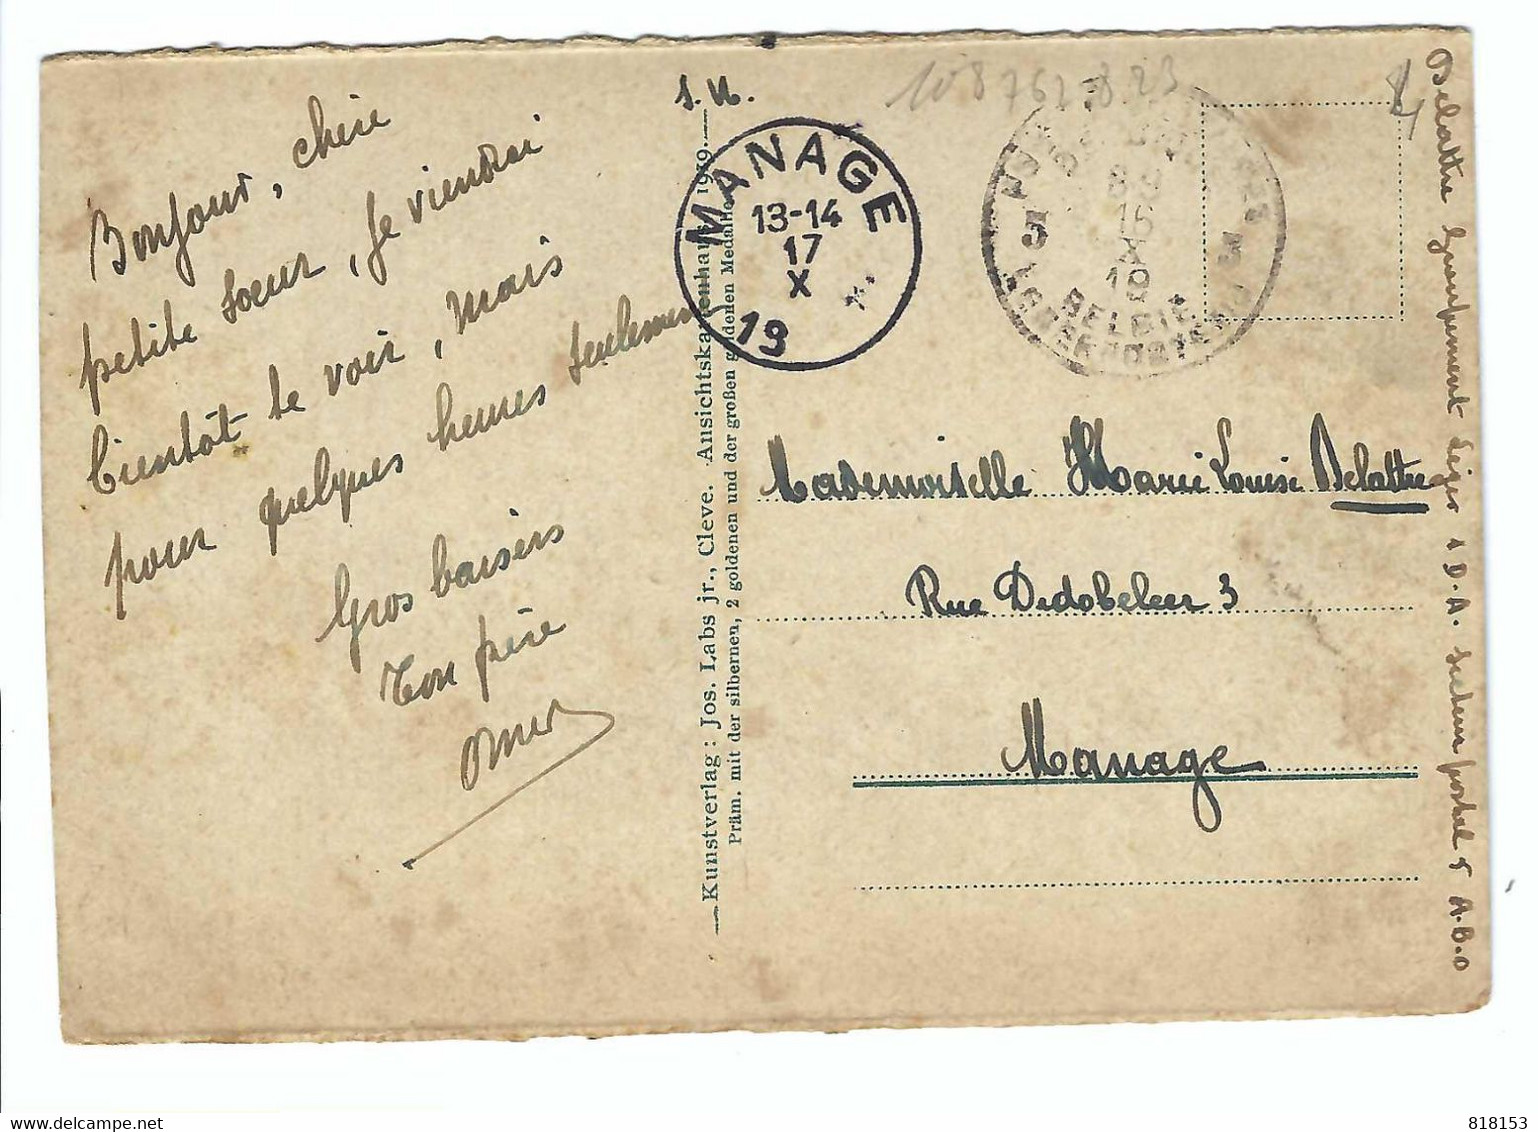 Bonjour, chère
petite soeur, je viendrai
bientôt te voir, mais
pour quelques heures seulement
Gros baisers
Ton père
Omer
S.M.
MANAGE
13-14
17
X
19
108762.8.23
5
16
X
19
BELGIE
5
4
Mademoiselle Marie Louise Delattre
Rue Dedobeleer 3
Manage
Kunstverlag: Jos. Labs jr., Cleve. Ansichtskartenhaus 1919
Präm. mit der silbernen, 2 goldenen und der großen goldenen Medaille
Delattre Groupement Léger 1 D.A. Secteur postal 5 A.B.O
delcampe.net
818153